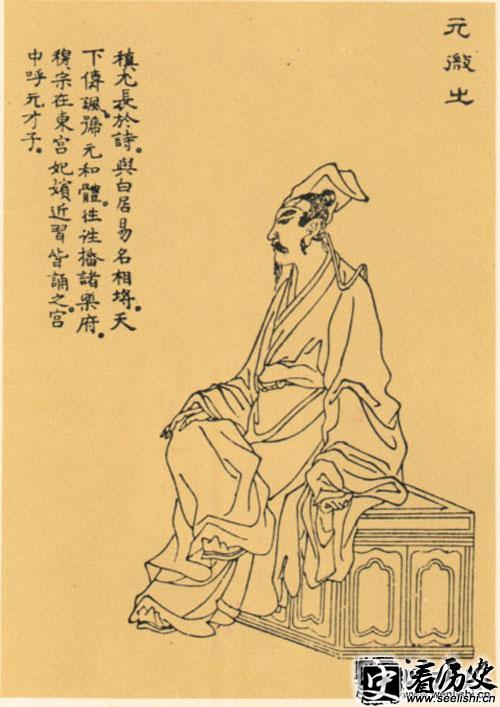 元微之
稹尤長於詩。與白居易名相埓。天
下傳諷。號元和體。往往播諸樂府。
穆宗在東宮妃嬪近習皆誦之宮
中呼元才子。
看历史
www.seelishi.cn